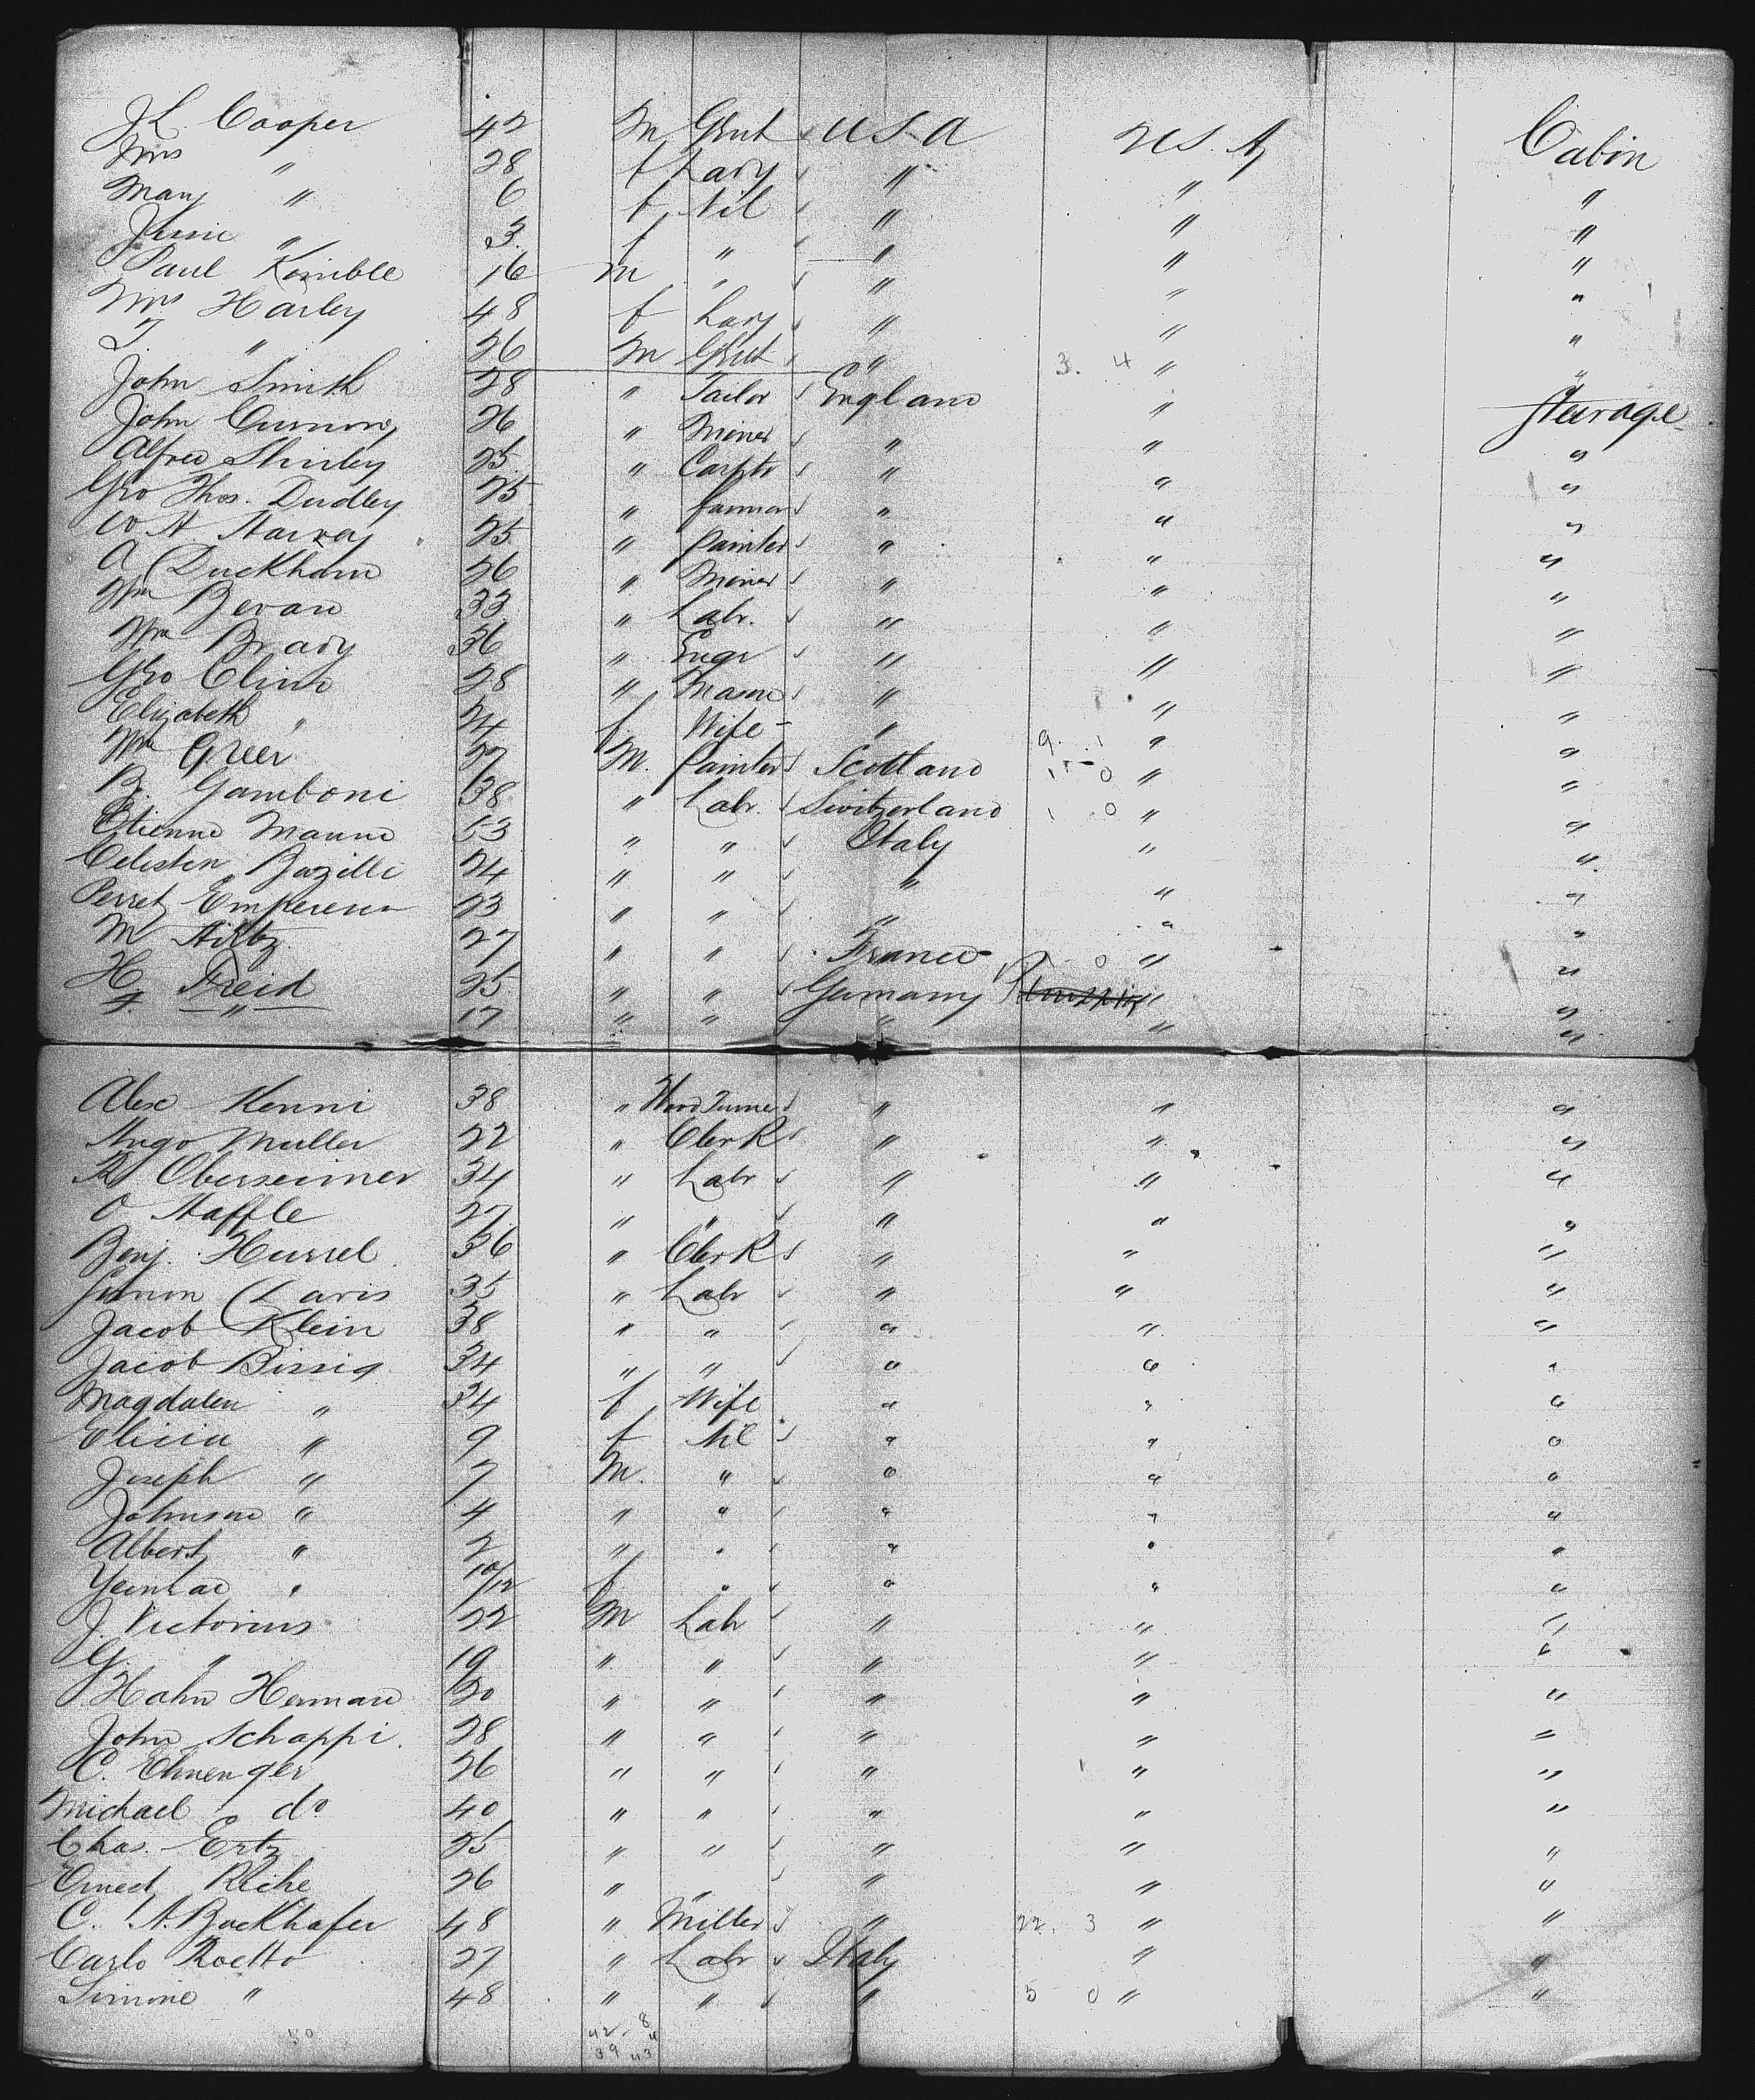 J. L. Cooper 42 M Gent USA U.S.A Cabin
Mrs " 28 f Lady " " "
Mary " 6 f Nil " " "
" 3 f " " " "
Paul Kimble 16 m " " " "
Mrs Harley 48 f Lady " " "
T. " 26 M Gent " 3. 4 " "
John Smith 28 " Tailor England " Steerage
John 26 " Miner " " "
Alfred Shirley 25 " Carptr " " "
Geo Thos. Dudley 25 " farmer " " "
W. H. Harvey 25 " painter " " "
A Duckham 26 " Miner " " "
Wm Bevan 33 " Labr. " " "
Wm Brady 36 " Engr " " "
Geo Cline 28 " " " "
Elizabeth " 24 f Wife " " "
Wm Greer 27 M. painter Scotland " "
B. Gamboni 38 " Labr. Switzerland 1 0 " "
Etienne Manne 53 " " Italy " "
Celestin Bazille 24 " " " " "
Perret 23 " " " " "
M 27 " " France 0 " "
H. Freid 25 " " Germany " "
F. " 17 " " " " "
Alex Kenni 38 " Wood Turner " " "
Hugo Muller 22 " Clerk " " "
R Oberseimer 34 " Labr " " "
O Haffle 27 " " " " "
Benj. Hurrel 36 " Clerk " " "
Simon Davis 35 " Labr " " "
Jacob Klein 38 " " " " "
Jacob Bissig 34 " " " " "
Magdalen " 34 f Wife " " "
Elicia " 9 f Nil " " "
Joseph " 7 M. " " " "
" 4 " " " " "
Albert " 2 " " " " "
" 10/12 f " " " "
J. Victorius 22 M Labr " " "
G. " 19 " " " " "
Hahn Herman 30 " " " " "
John Schappi 28 " " " " "
C. Ehnenger 26 " " " " "
Michael do 40 " " " " "
Chas. Ertz 25 " " " " "
Ernest Riche 26 " " " " "
C. A. Bockhafer 48 " Miller " 22. 3 " "
Carlo Roetto 27 " Labr Italy " "
Simone " 48 " " " 5 0 " "
50 42 8
39 43